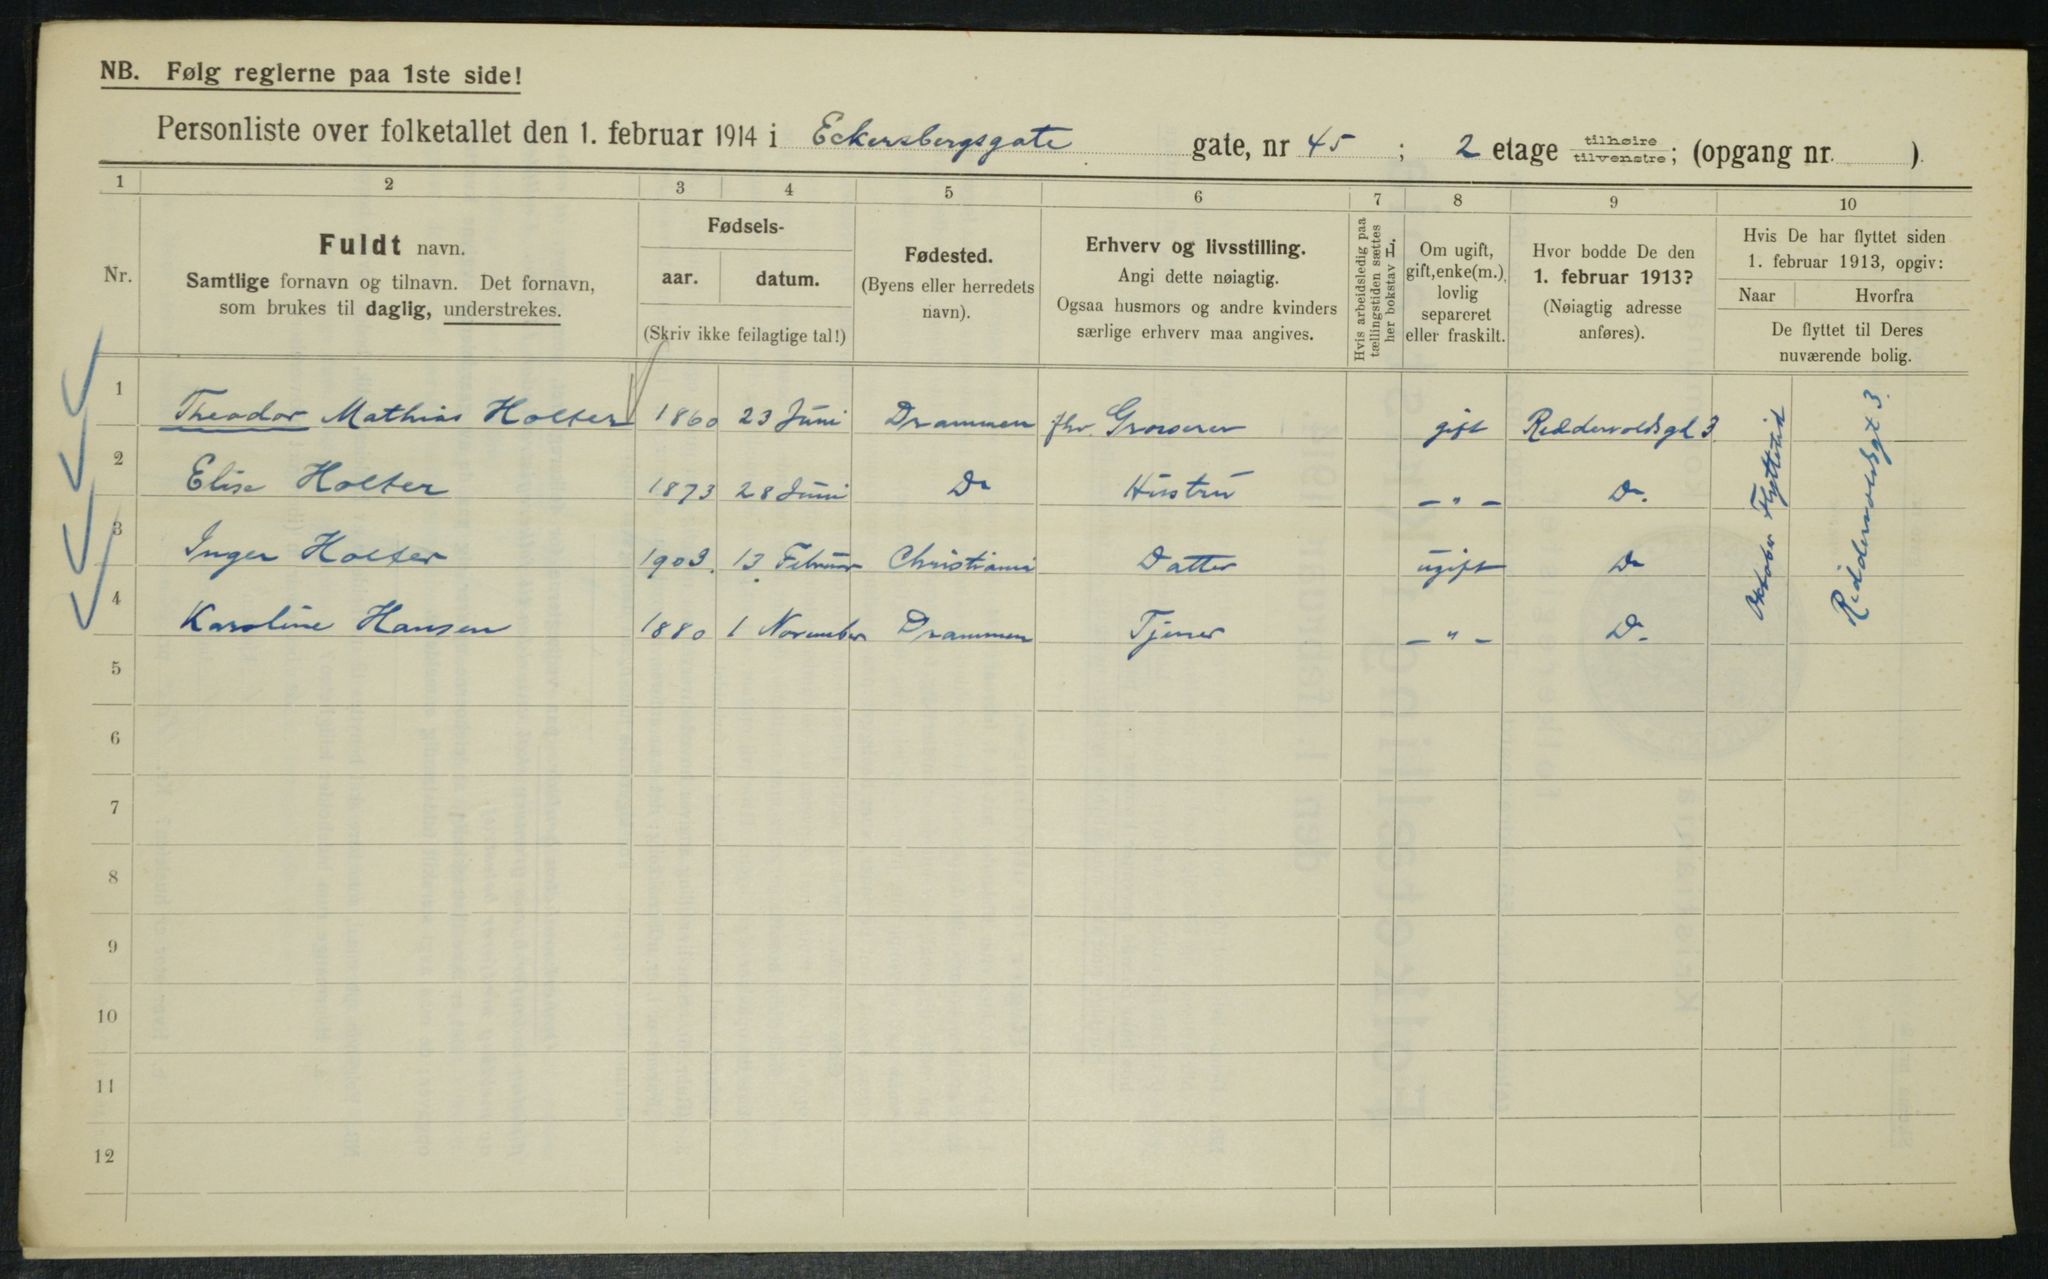 NB. Følg reglerne paa 1ste side!
Personliste over folketallet den 1. februar 1914 i Eckersbergsgate gate, nr 45; 2 etage tilhøire tilvenstre; (opgang nr. ).
1 2 3 4 5 6 7 8 9 10
Nr.
Fuldt navn.
Samtlige fornavn og tilnavn. Det fornavn,
som brukes til daglig, understrekes.
Fødsels-
aar. datum.
(Skriv ikke feilagtige tal!)
Fødested.
(Byens eller herredets
navn).
Erhverv og livsstilling.
Angi dette nøiagtig.
Ogsaa husmors og andre kvinders
særlige erhverv maa angives.
Hvis arbeidsledig paa
tællingstiden sættes
her bokstav L.
Om ugift,
gift, enke(m.),
lovlig
separeret
eller fraskilt.
Hvor bodde De den
1. februar 1913?
(Nøiagtig adresse
anføres).
Hvis De har flyttet siden
1. februar 1913, opgiv:
Naar Hvorfra
De flyttet til Deres
nuværende bolig.
1 Theodor Mathias Holter 1860 23 Juni Drammen fhv. Grosserer gift Riddervoldsgt 3
2 Elise Holter 1873 28 Juni Do Hustru — " — Do.
3 Inger Holter 1903. 13. Februar Christiania Datter ugift Do
4 Karoline Hansen 1880 1 November Drammen Tjener — " — Do.
Oktober Flyttetid
Riddervoldsgt 3.
5
6
7
8
9
10
11
12